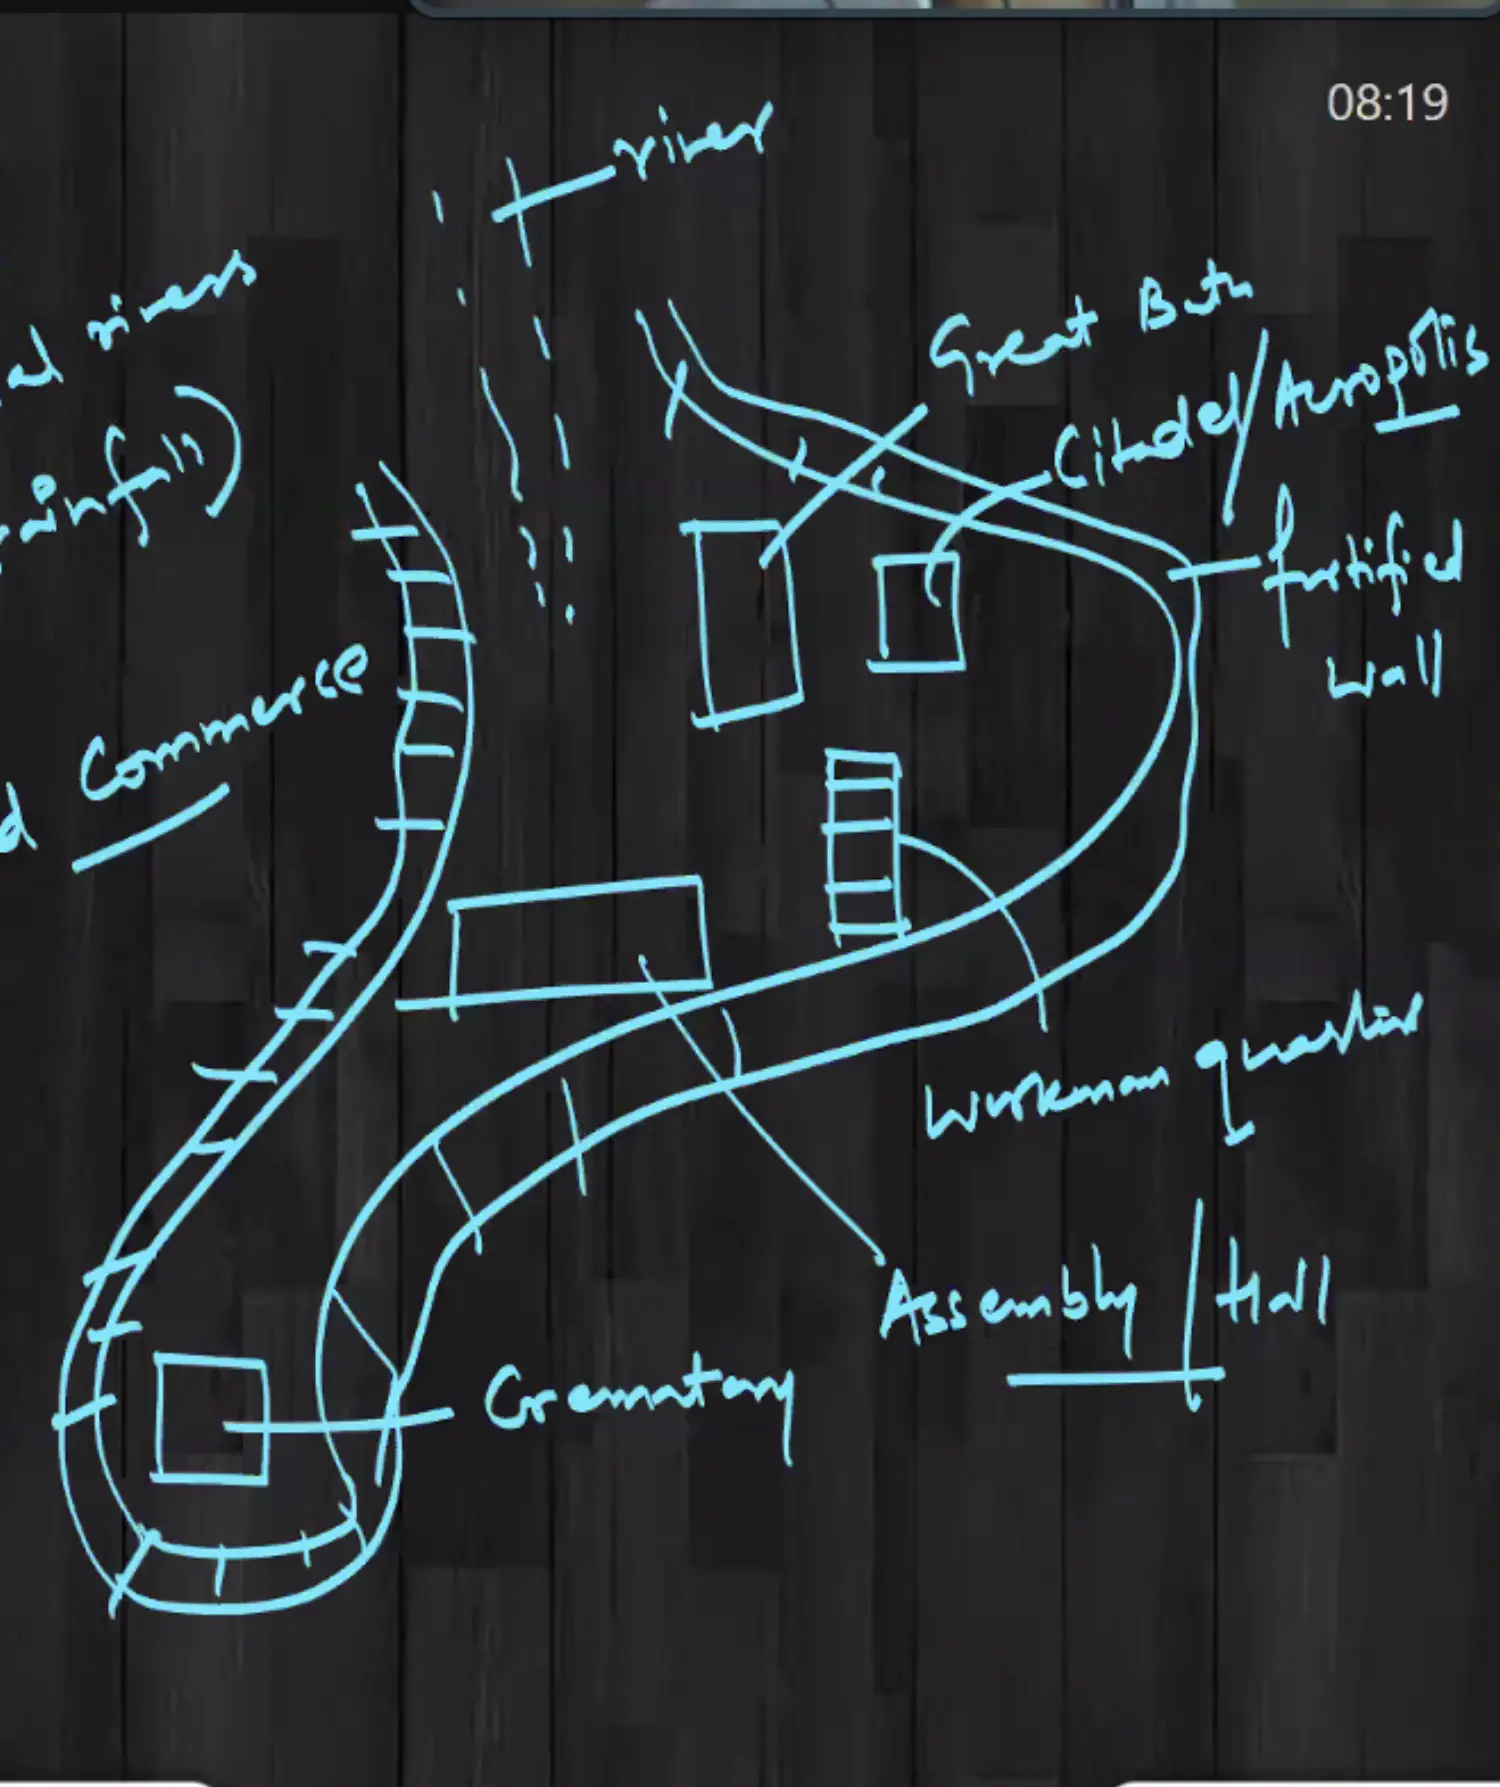 08:19
river
al rivers
rainfall)
Great Bath
Citadel/Acropolis
fortified
wall
d Commerce
Workman quarter
Assembly / Hall
Crematory